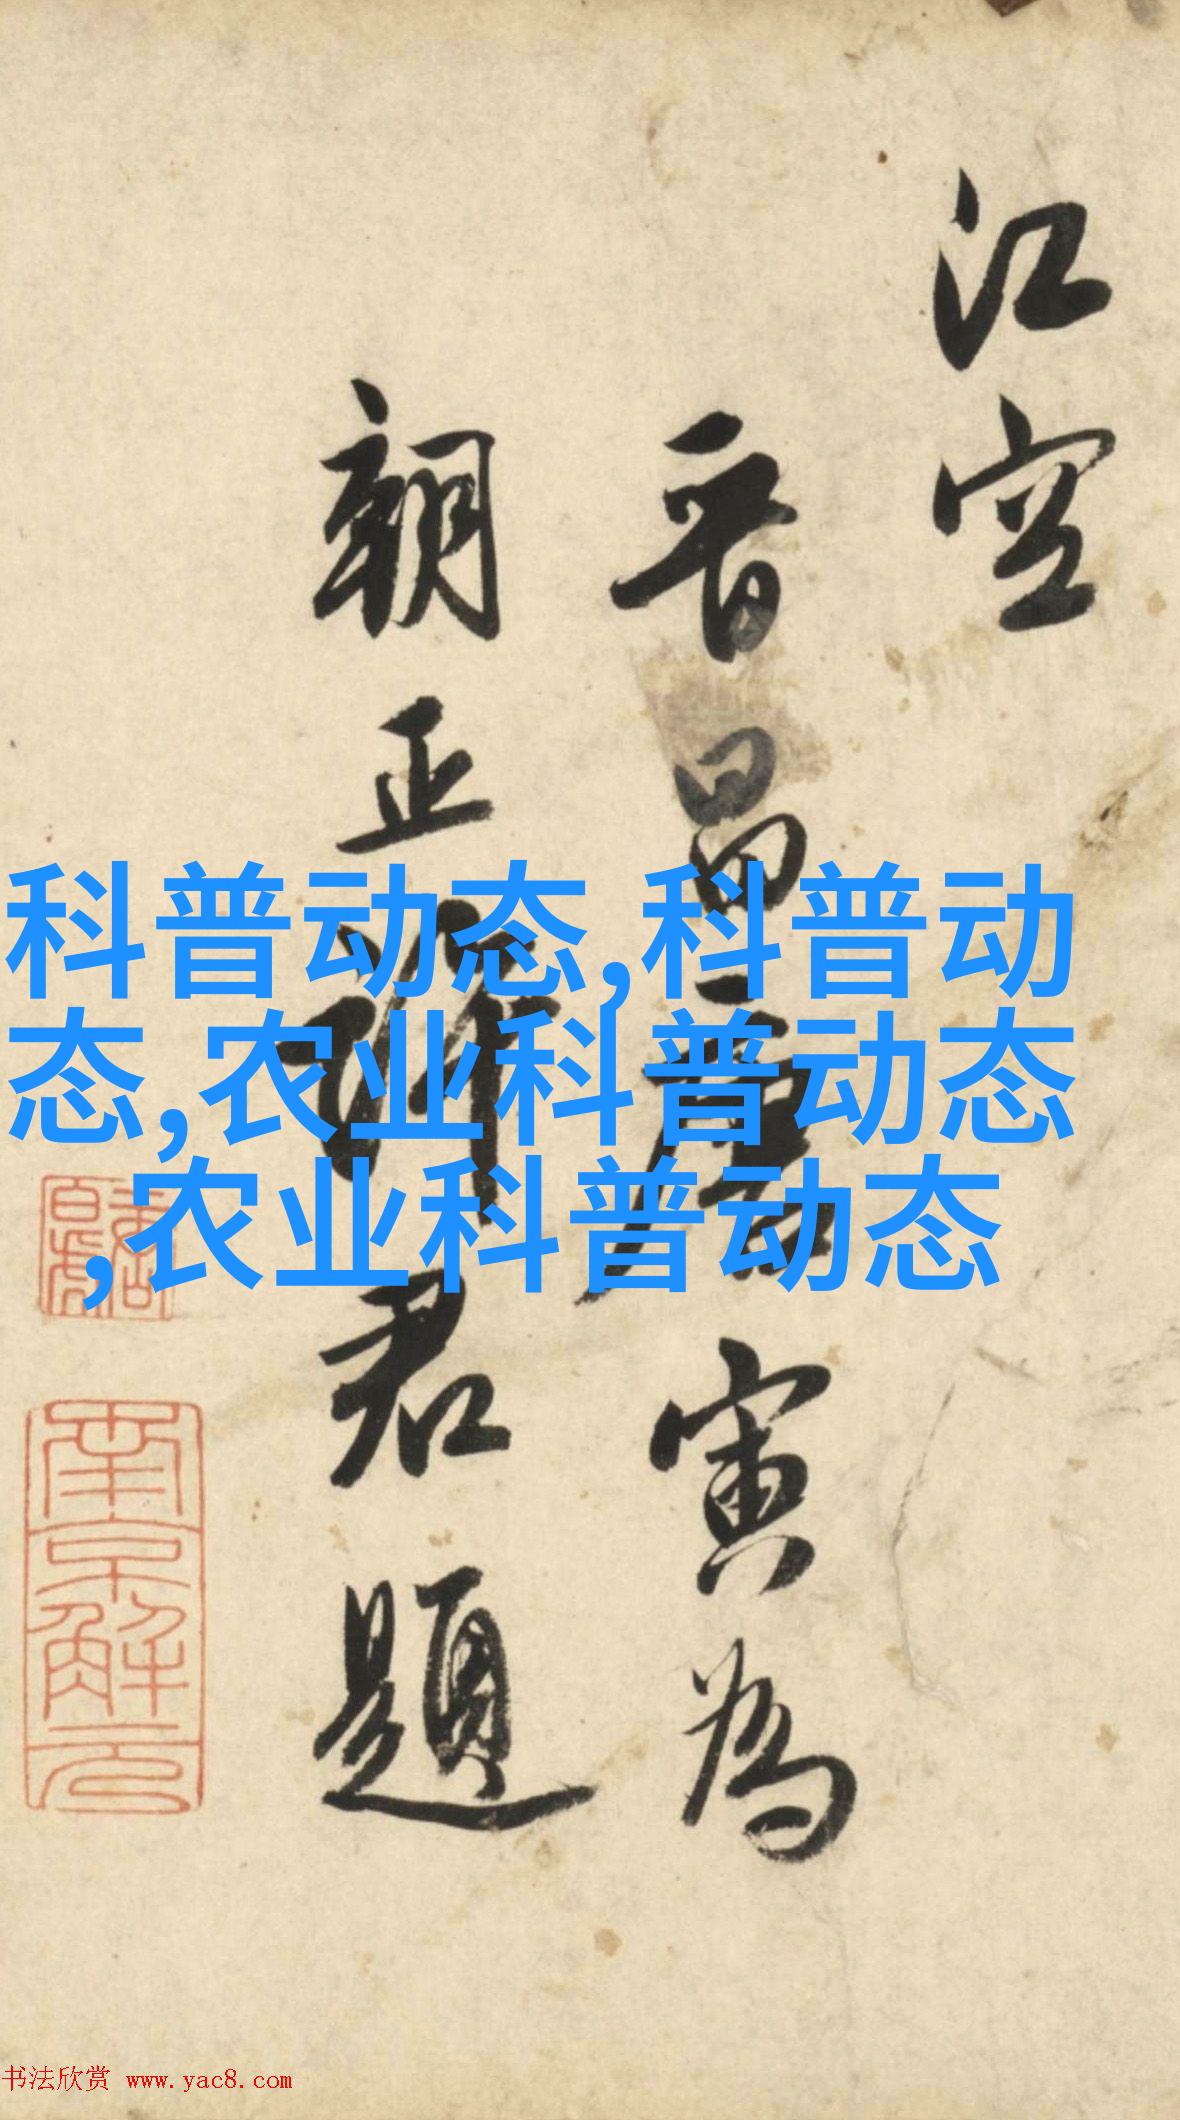 江空
晋昌唐寅為
朝正许君題
科普动态,科普动
态,农业科普动态
,农业科普动态
南京解元
书法欣赏 www.yac8.com